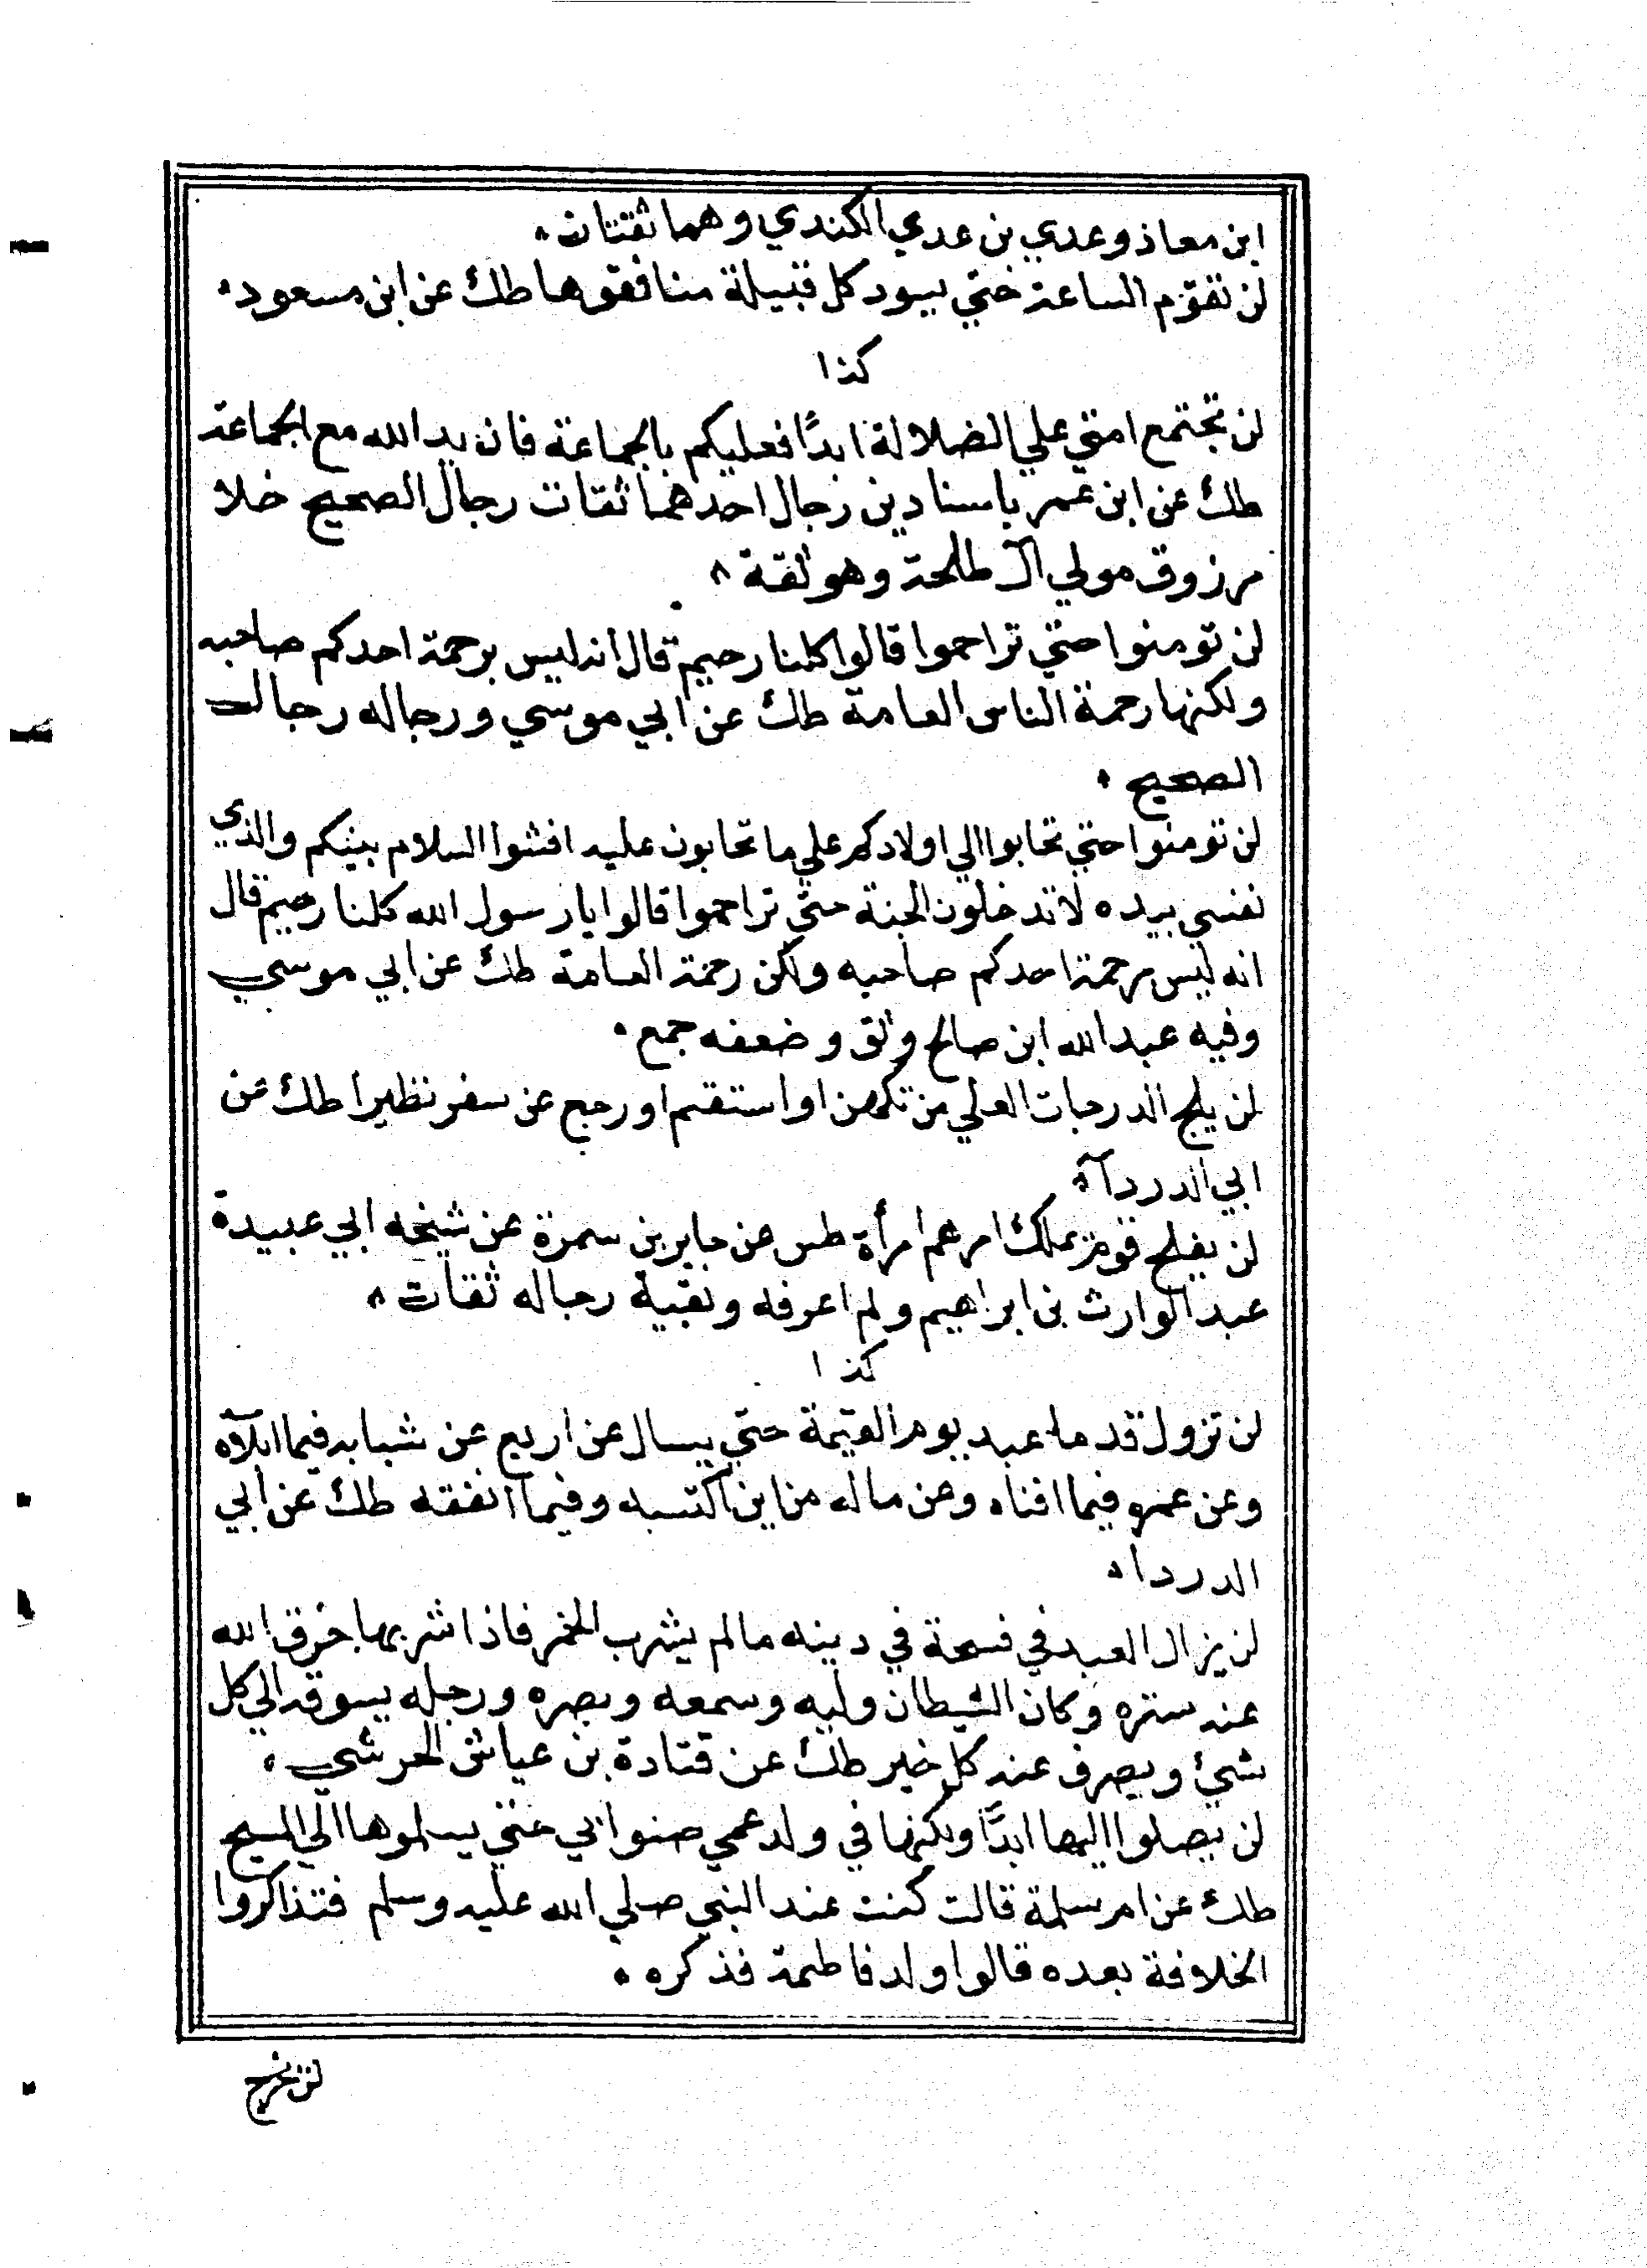 ابن معاذ وعدي بن عدي الكندي وهما ثقتان
لن تقوم الساعة حتي يسود كل قبيلة منافقوها طك عن ابن مسعود
كذا
لن تجتمع امتي علي الضلالة ابدًا فعليكم بالجماعة فان يد الله مع الجماعة
طك عن ابن عمر باسنادين رجال احدهما ثقات رجال الصحيح خلا
مرزوق مولي آل طلحة وهو ثقة
لن تومنوا حتي تراحموا قالوا كلنا رحيم قال انه ليس برحمة احدكم صاحبه
ولكنها رحمة الناس العامة طك عن ابي موسي ورجاله رجال
الصحيح
لن تومنوا حتي تحابوا الي اولادكم علي ما تحابون عليه افشوا السلام بينكم والذي
نفسي بيده لا تدخلون الجنة حتي تراحموا قالوا يا رسول الله كلنا رحيم قال
انه ليس برحمة احدكم صاحبه ولكن رحمة العامة طك عن ابي موسي
وفيه عبد الله ابن صالح وثق وضعفه جمع
لن يلج الدرجات العلي من تكهن او استقسم او رجع عن سفر تطيرا طك عن
ابي الدرداء
لن يفلح قوم يملك امرهم امرأة طس عن جابر بن سمرة عن شيخه ابي عبيدة
عبد الوارث بن ابراهيم ولم اعرفه وبقية رجاله ثقات
كذا
لن تزول قدما عبد يوم القيمة حتي يسال عن اربع عن شبابه فيما ابلاه
وعن عمره فيما افناه وعن ماله من اين اكتسبه وفيما انفقه طك عن ابي
الدرداء
لن يزال العبد في فسحة في دينه ما لم يشرب الخمر فاذا شربها خرق الله
عنه ستره وكان الشيطان وليه وسمعه وبصره ورجله يسوقه الي كل
شئ ويصرفه عن كل خير طك عن قتادة بن عياش الحرشي
لن يصلوا اليها ابدًا ولكنها في ولد عمي صنو ابي حتي يسلموها الي المسيح
طك عن ام سلمة قالت كنت عند النبي صلي الله عليه وسلم فتذاكروا
الخلافة بعده قالوا ولد فاطمة فذكره
لن تخرج